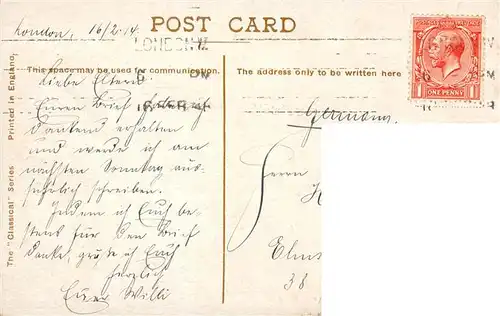 London, 16/2.14.
POST CARD
LONDON. W.
This space may be used for communication.
The address only to be written here
ONE PENNY
The "Classical" Series Printed in England.
Liebe Eltern!
Euren Brief
dankend erhalten
und werde ich am
nächsten Sonntag aus-
führlich schreiben.
Indem ich Euch be-
stens für den Brief
danke, grüße ich Euch
herzlich
Euer Willi
Germany.
Herrn
Elms
38